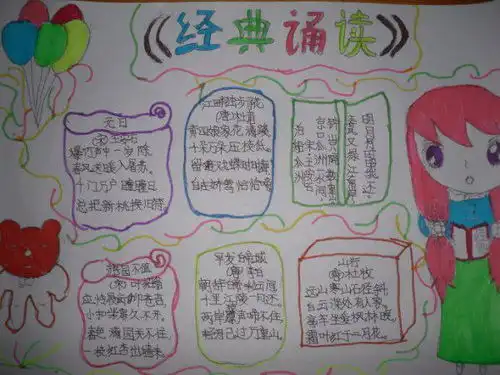 《经典诵读》
元日
(宋)王安石
爆竹声中一岁除
春风送暖入屠苏
千门万户曈曈日
总把新桃换旧符
江畔独步寻花
(唐)杜甫
黄四娘家花满蹊
千朵万朵压枝低
留连戏蝶时时舞
自在娇莺恰恰啼
泊船瓜洲
京口瓜洲
钟山
春风又绿江南岸
明月何时照我还
游园不值
(宋)叶绍翁
应怜屐齿印苍苔
小扣柴扉久不开
春色满园关不住
一枝红杏出墙来
早发白帝城
(唐)李白
朝辞白帝彩云间
千里江陵一日还
两岸猿声啼不住
轻舟已过万重山
山行
(唐)杜牧
远上寒山石径斜
白云深处有人家
停车坐爱枫林晚
霜叶红于二月花。